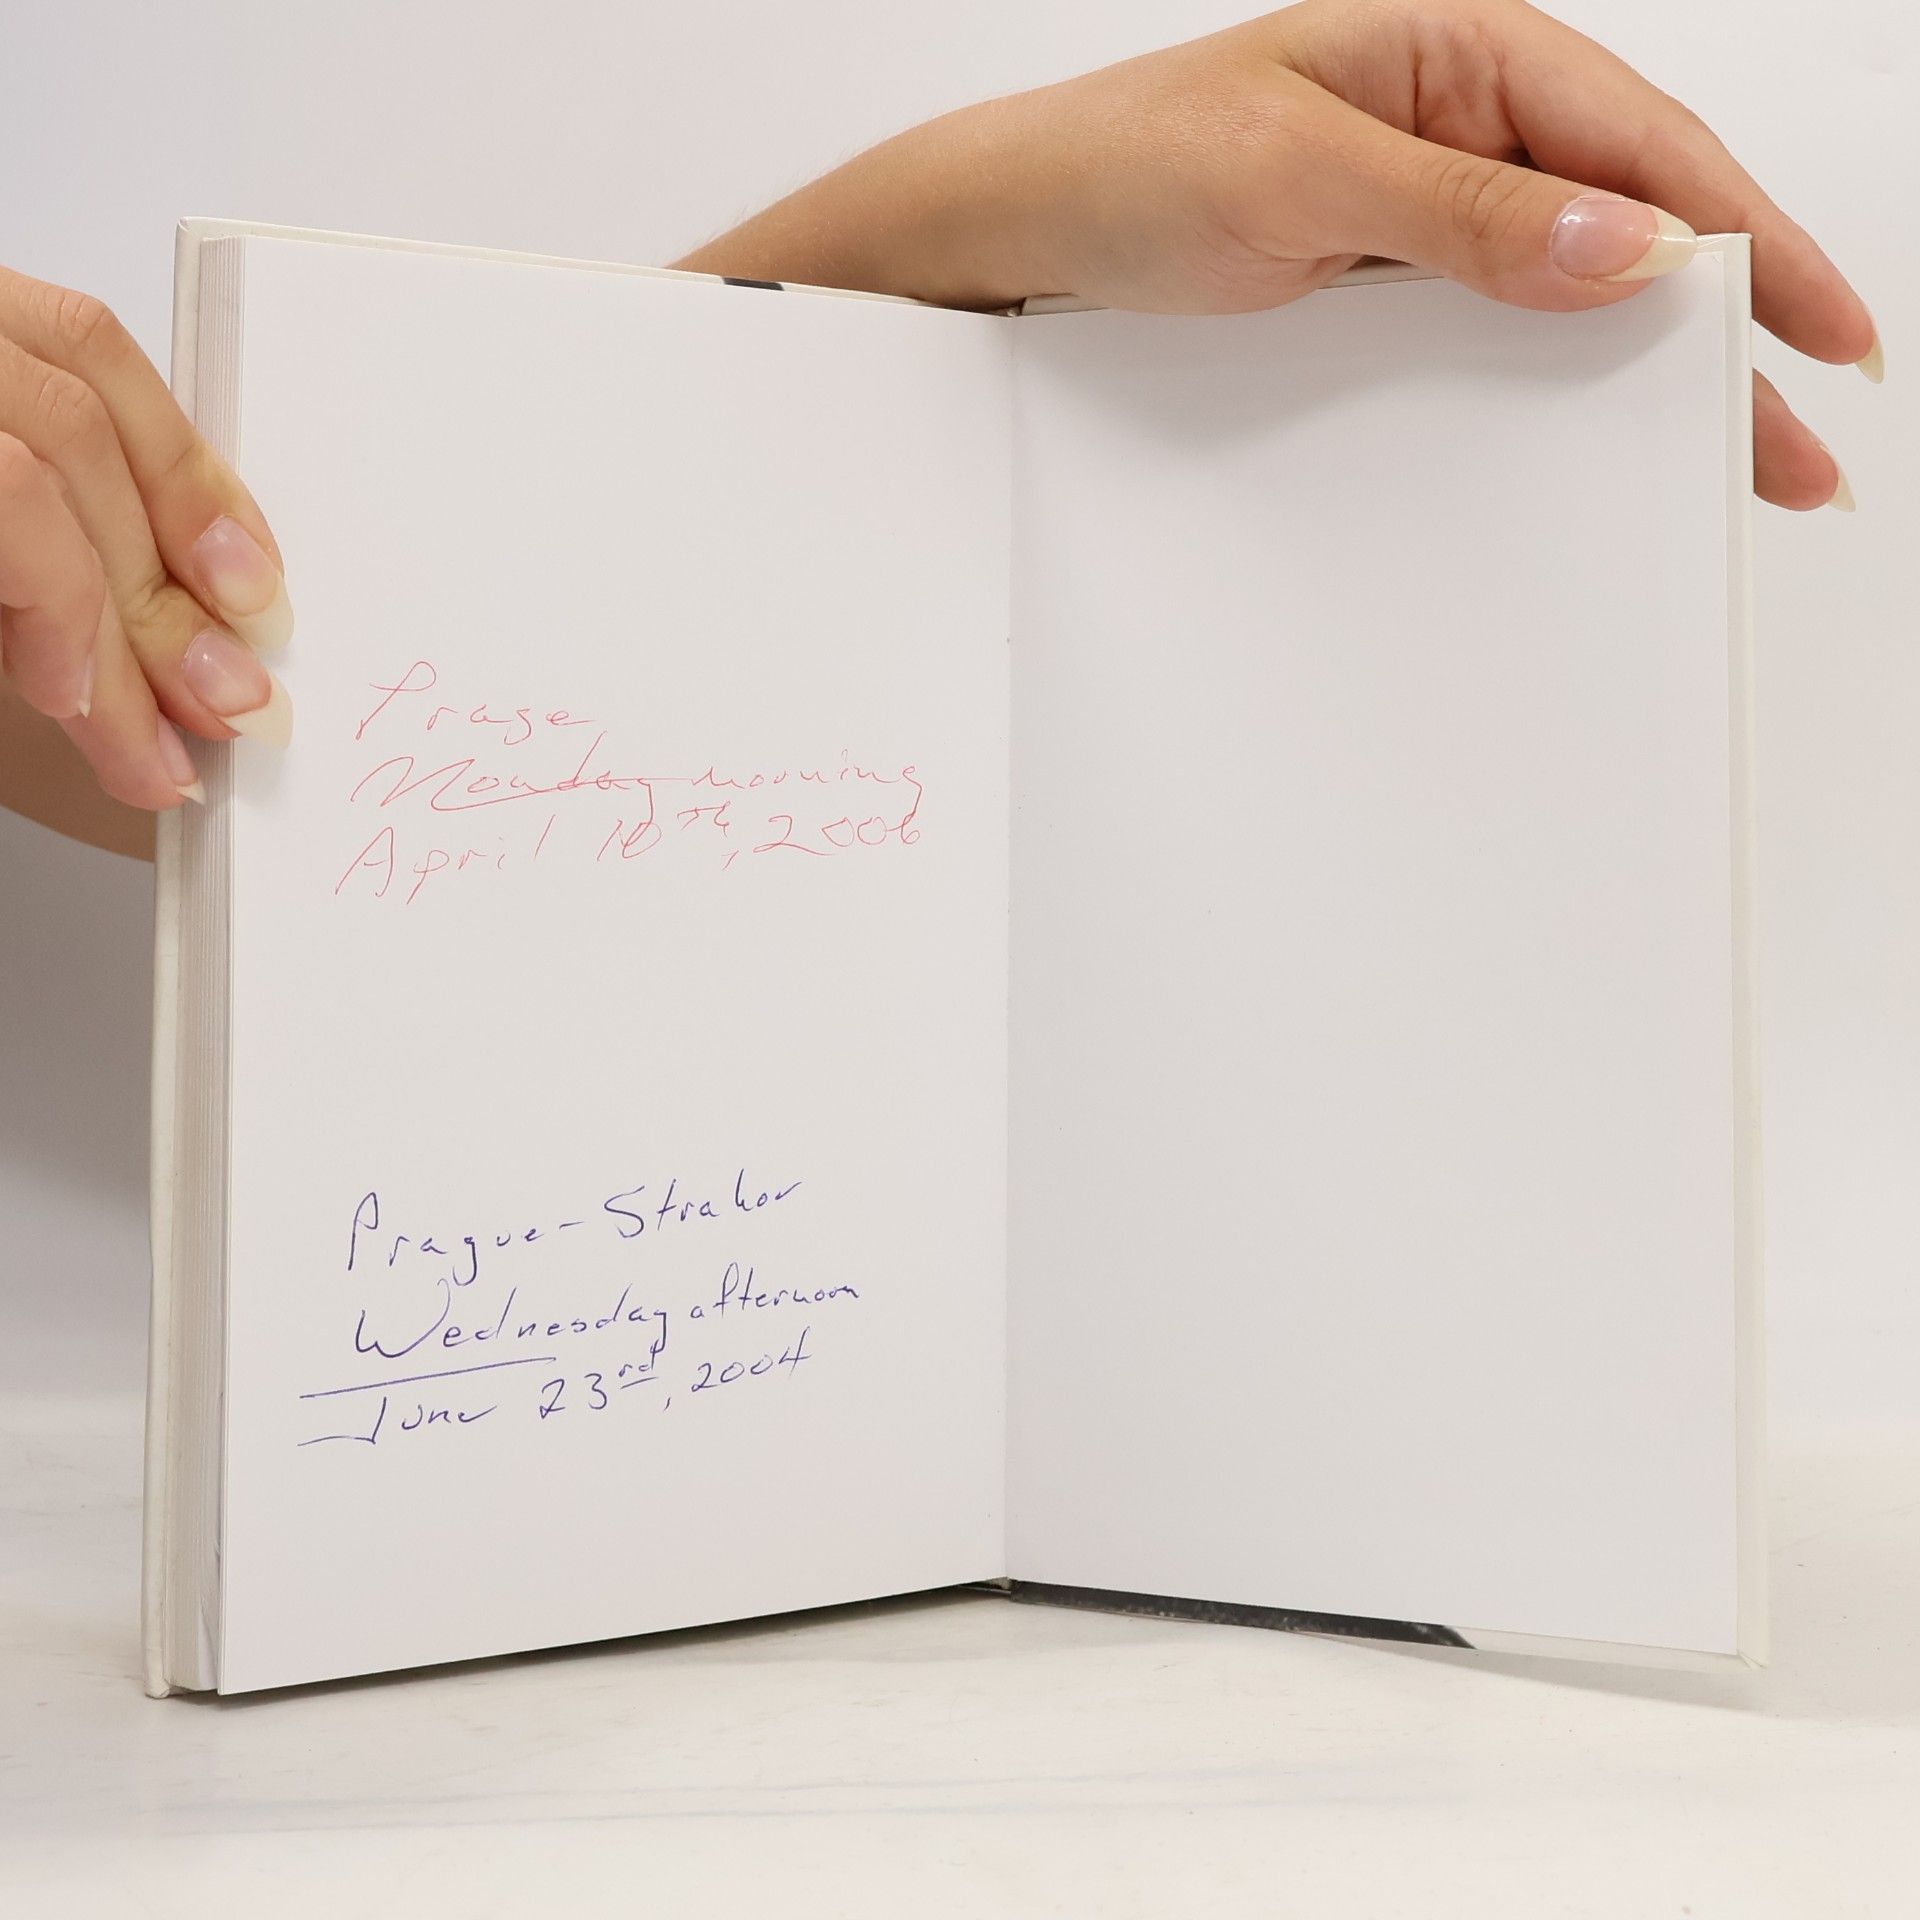 Prage
Monday morning
April 10th, 2006
Prague - Strahov
Wednesday afternoon
June 23rd, 2004